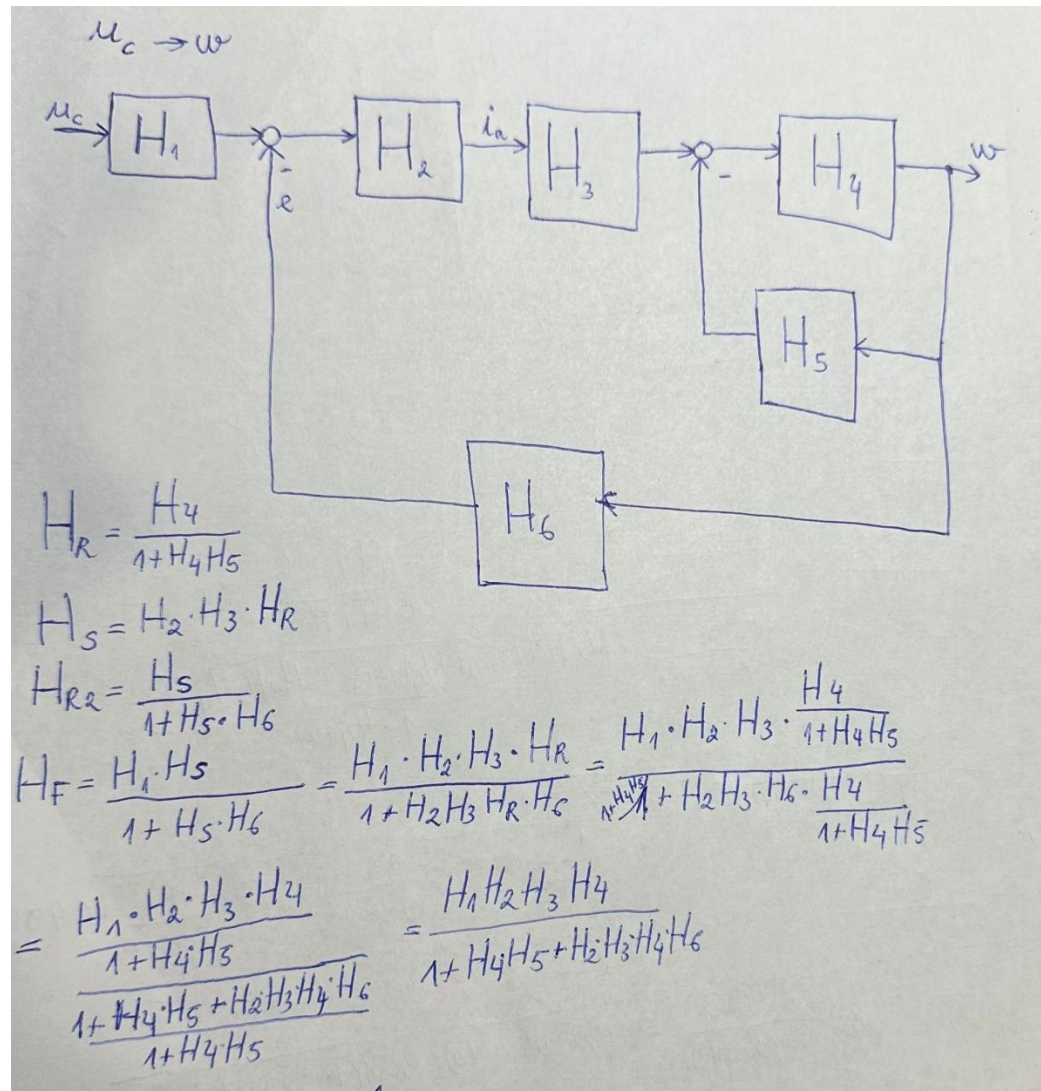 u_c → w
u_c H_1 - e H_2 i_a H_3 - H_4 w
H_5
H_6
H_R = H_4 / (1+H_4H_5)
H_S = H_2·H_3·H_R
H_R2 = H_S / (1+H_S·H_6)
H_F = (H_1·H_S) / (1+H_S·H_6) = (H_1·H_2·H_3·H_R) / (1+H_2H_3H_R·H_6) = (H_1·H_2·H_3·H_4/(1+H_4H_5)) / (1+H_4H_5 1 + H_2H_3·H_6·H_4/(1+H_4H_5))
= ((H_1·H_2·H_3·H_4) / (1+H_4·H_5)) / ((1+H_4·H_5+H_2·H_3·H_4·H_6) / (1+H_4·H_5)) = (H_1H_2H_3H_4) / (1+H_4·H_5+H_2·H_3·H_4·H_6)